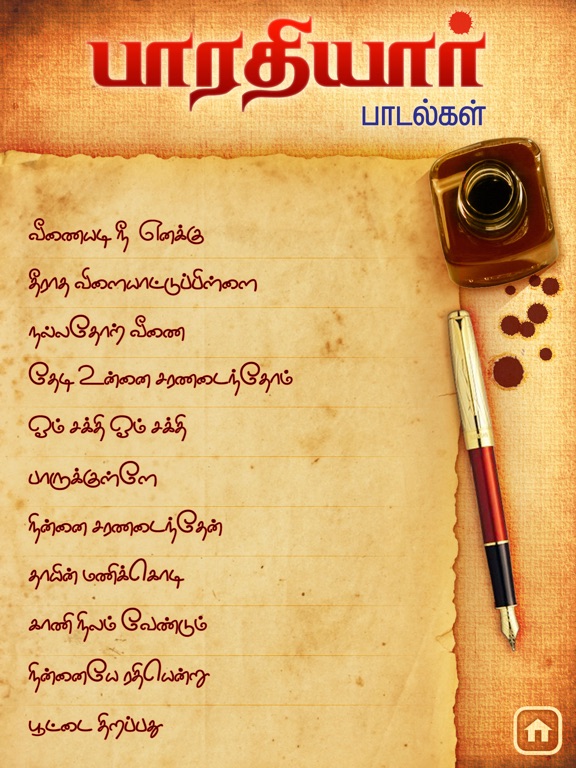 பாரதியார்
பாடல்கள்
வீணையடி நீ எனக்கு
தீராத விளையாட்டுப்பிள்ளை
நல்லதோர் வீணை
தேடி உன்னை சரணடைந்தோம்
ஓம் சக்தி ஓம் சக்தி
பாருக்குள்ளே
நின்னை சரணடைந்தேன்
தாயின் மணிக்கொடி
காணி நிலம் வேண்டும்
நின்னையே ரதியென்று
பூட்டை திறப்பது